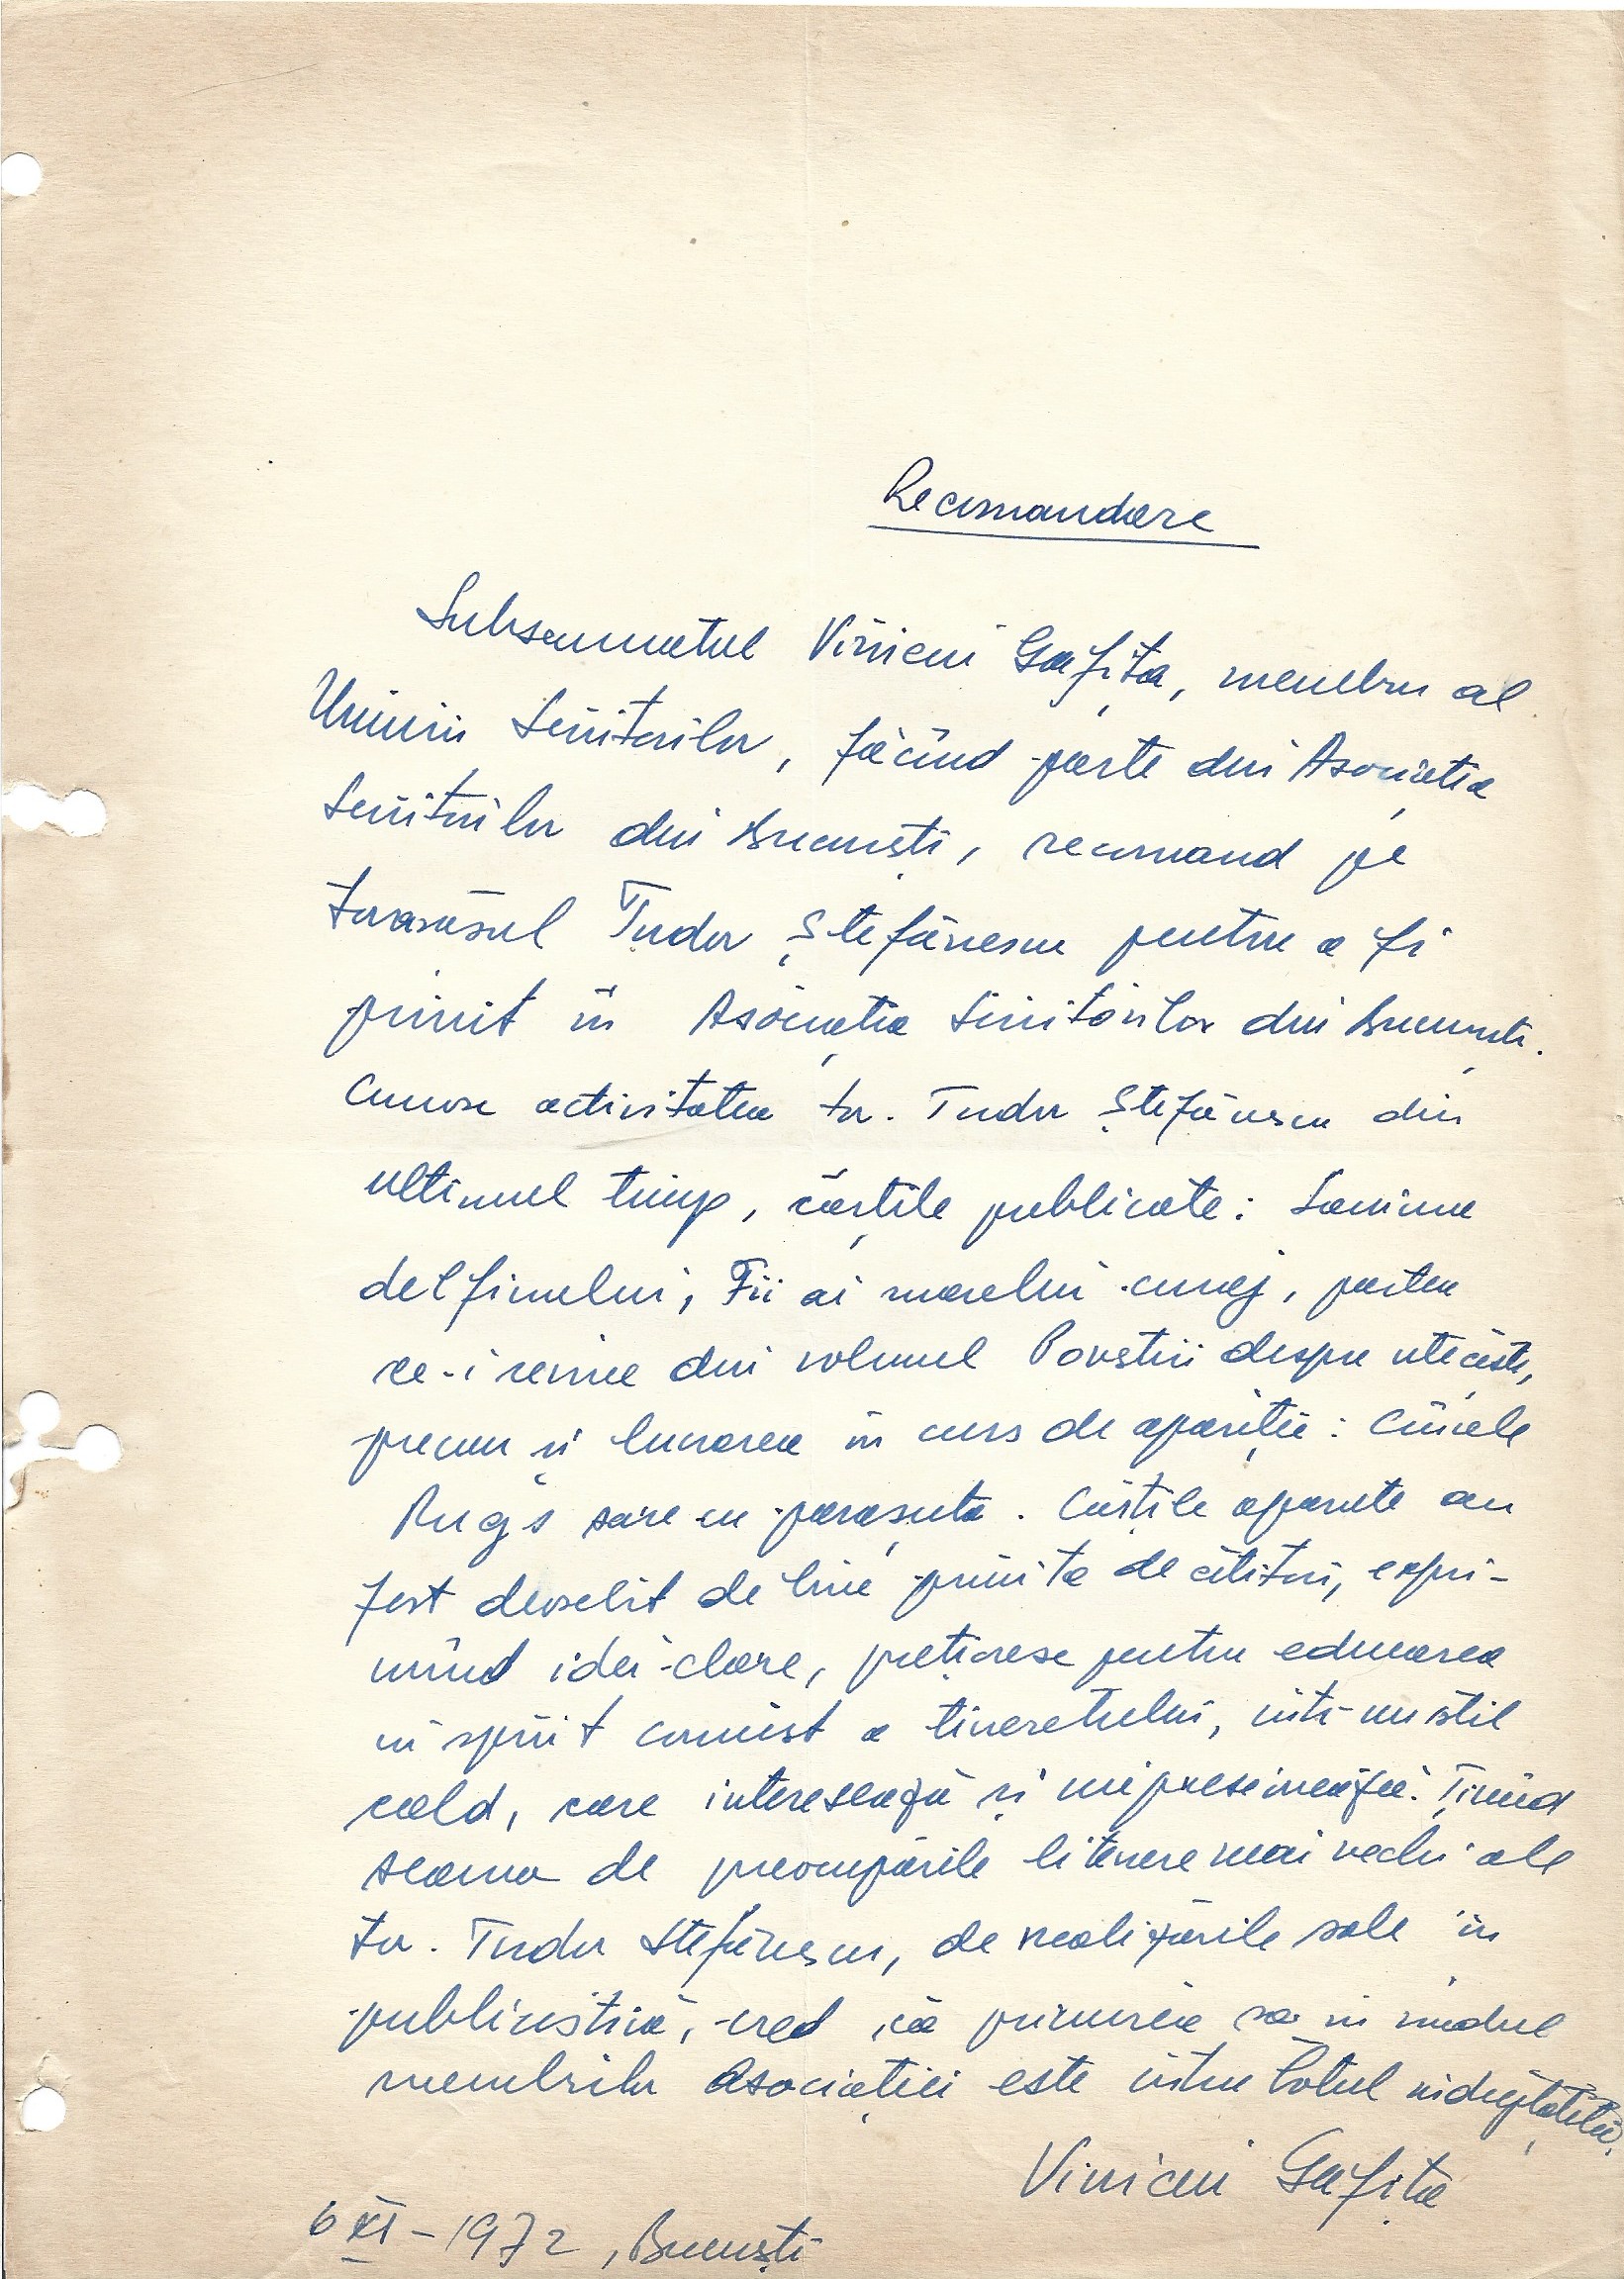 Recomandare
Subsemnatul Viniciu Gafița, membru al
Uniunii Scriitorilor, făcînd parte din Asociația
Scriitorilor din București, recomand pe
tovarășul Tudor Ștefănescu pentru a fi
primit în Asociația Scriitorilor din București.
Cunosc activitatea tov. Tudor Ștefănescu din
ultimul timp, cărțile publicate: Lacrima
delfinului, Fii ai marelui curaj, partea
ce-i revine din volumul Povestiri despre uteciști,
precum și lucrarea în curs de apariție: Cîinele
Rugs sare cu parașuta. Cărțile apărute au
fost deosebit de bine primite de cititori, expri-
mînd idei clare, prețioase pentru educarea
în spirit comunist a tineretului, într-un stil
cald, care interesează și impresionează. Ținînd
seama de preocupările literare mai vechi ale
tov. Tudor Ștefănescu, de realizările sale în
publicistică, cred că primirea sa în rîndul
membrilor Asociației este întru totul îndreptățită.
Viniciu Gafița
6 XI - 1972, București